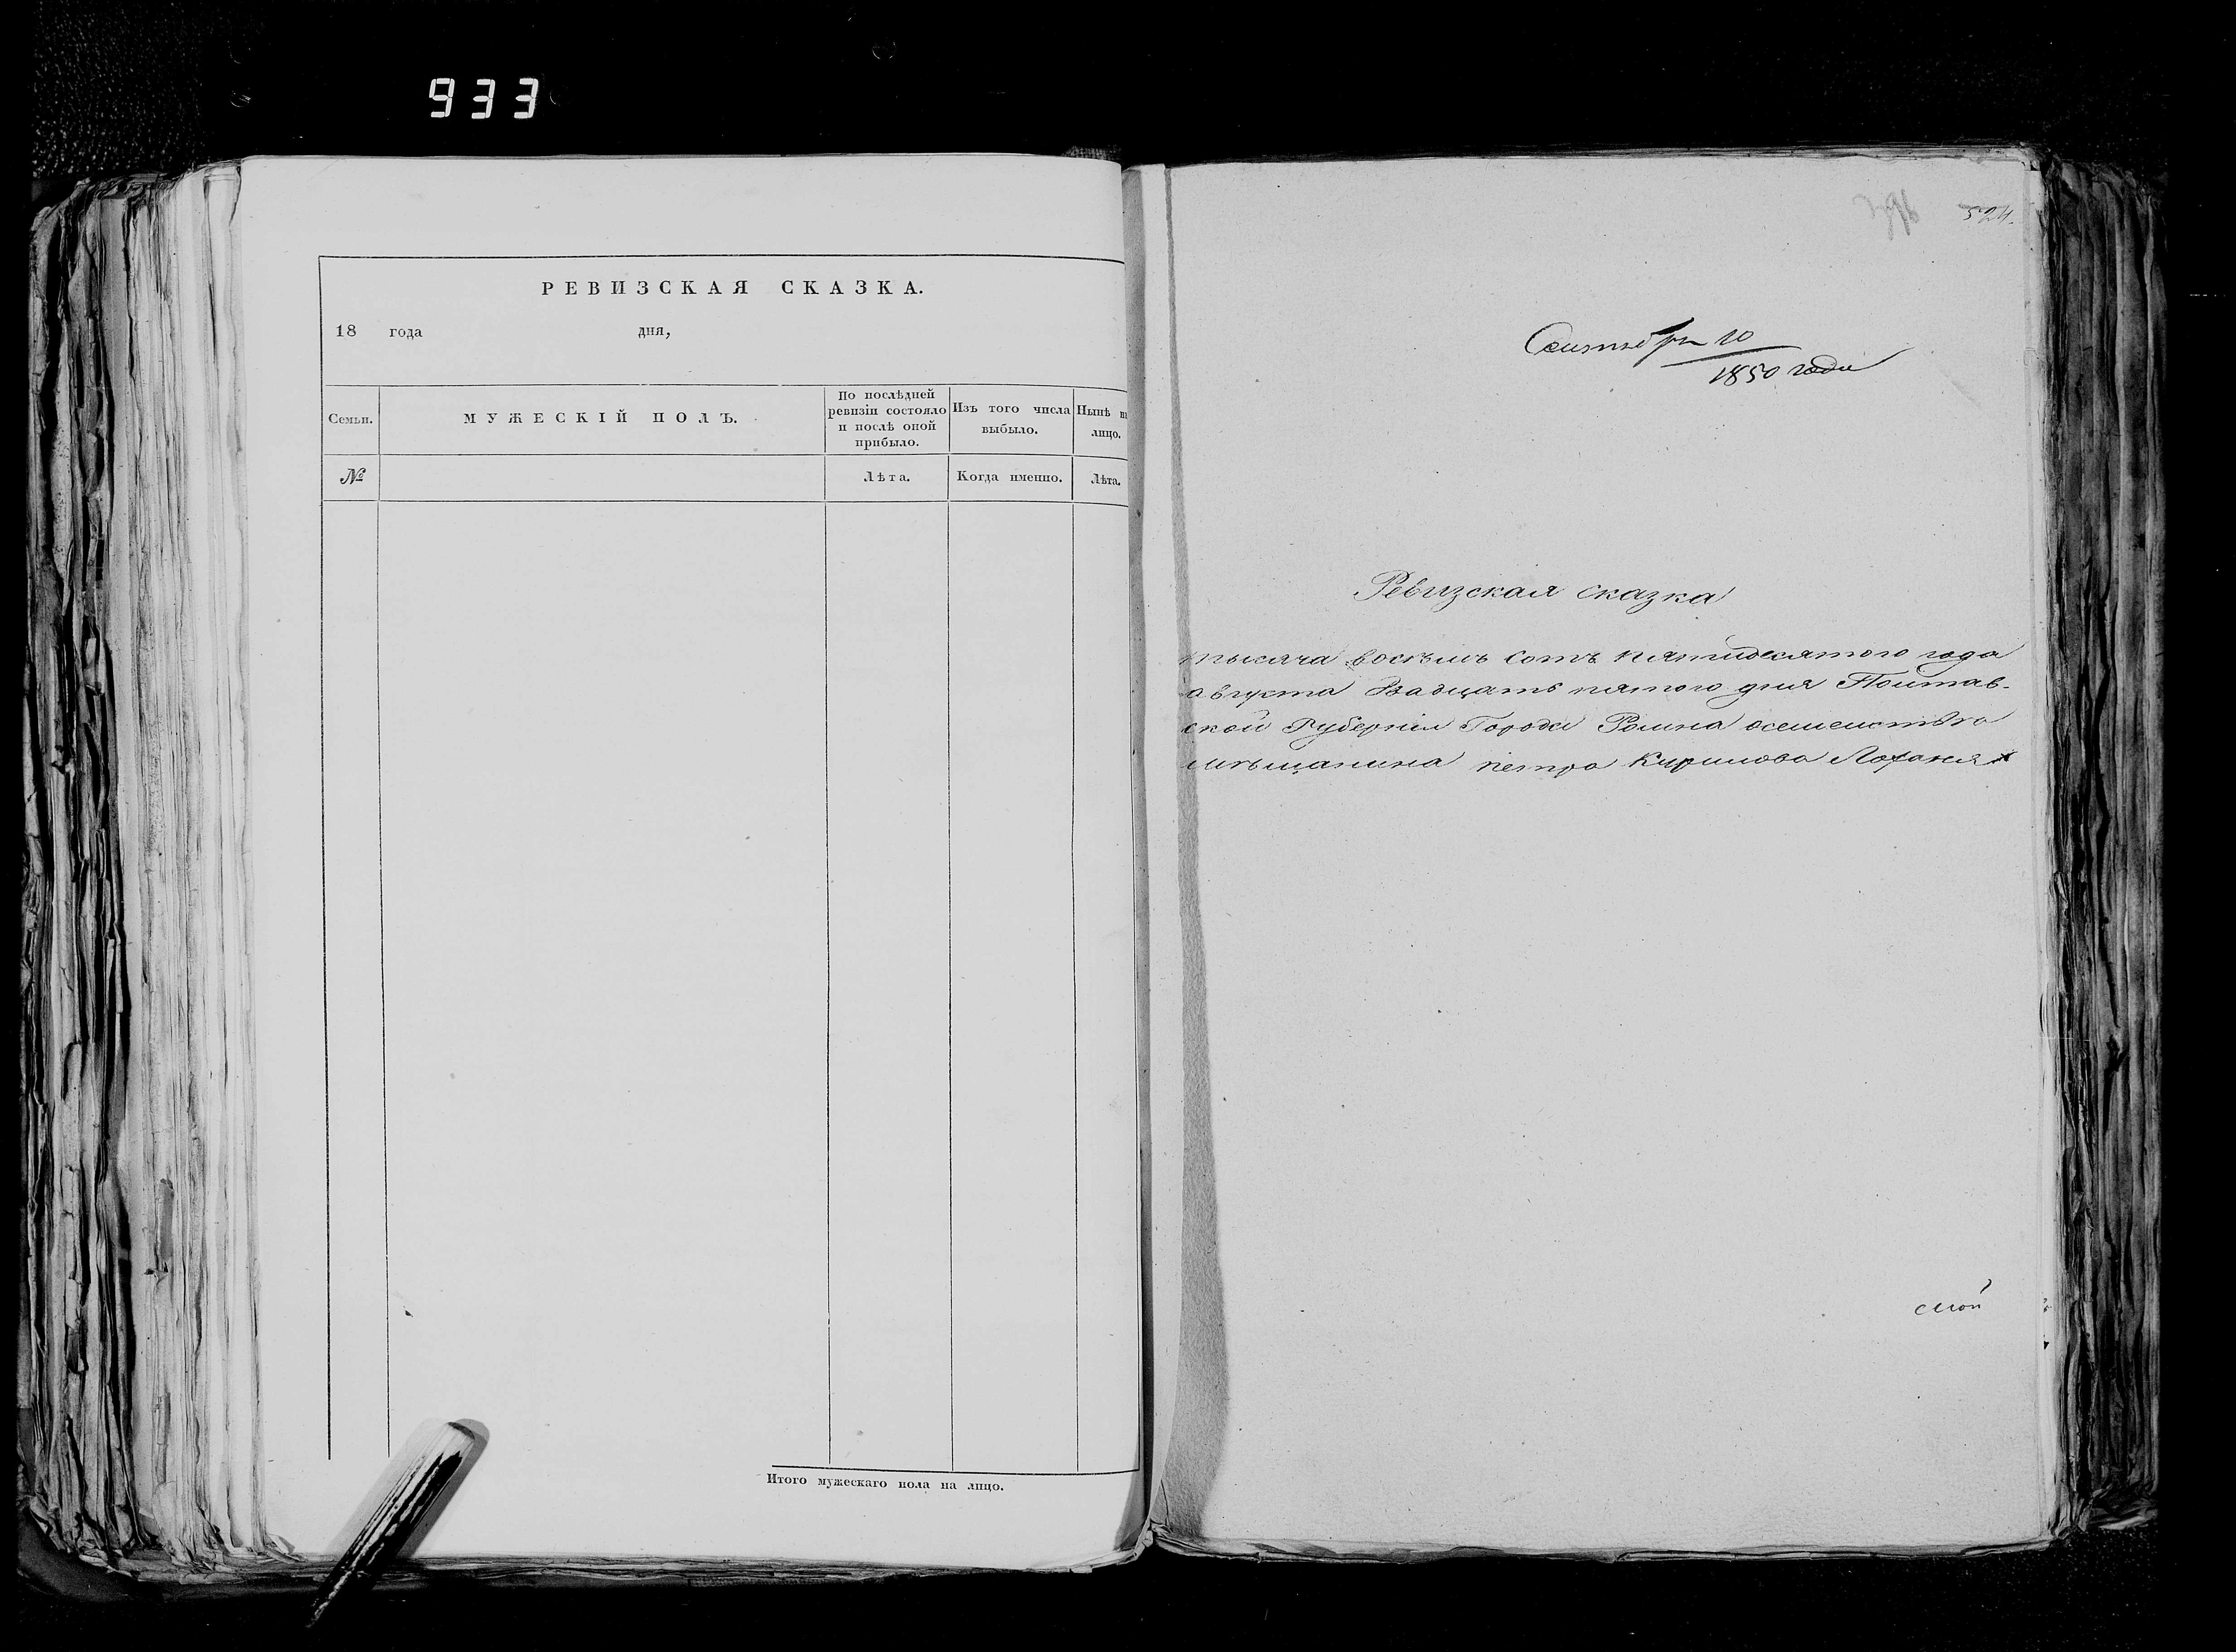 933
РЕВИЗСКАЯ СКАЗКА.
18 года дня,
Семьи.
МУЖЕСКІЙ ПОЛЪ.
По послѣдней
ревизіи состояло
и послѣ оной
прибыло.
Изъ того числа
выбыло.
Нынѣ н
лицо.
№
Лѣта.
Когда именно.
Лѣта.
Итого мужескаго пола на лицо.
524.
Сентября 10
1850 года
Ревизская сказка
тысяча восемь сотъ пятидесятого года
августа двадцать пятого дня Полтав-
ской Губернии Города Ромна осемействѣ
мѣщанина петра Кирилова